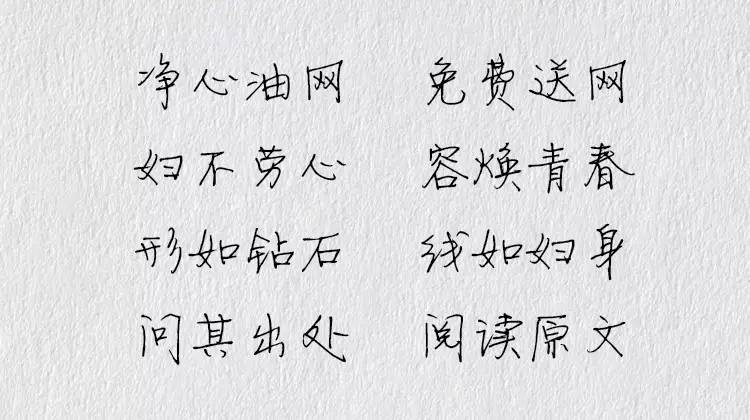 净心油网 免费送网
妇不劳心 容焕青春
形如钻石 线如妇身
问其出处 阅读原文